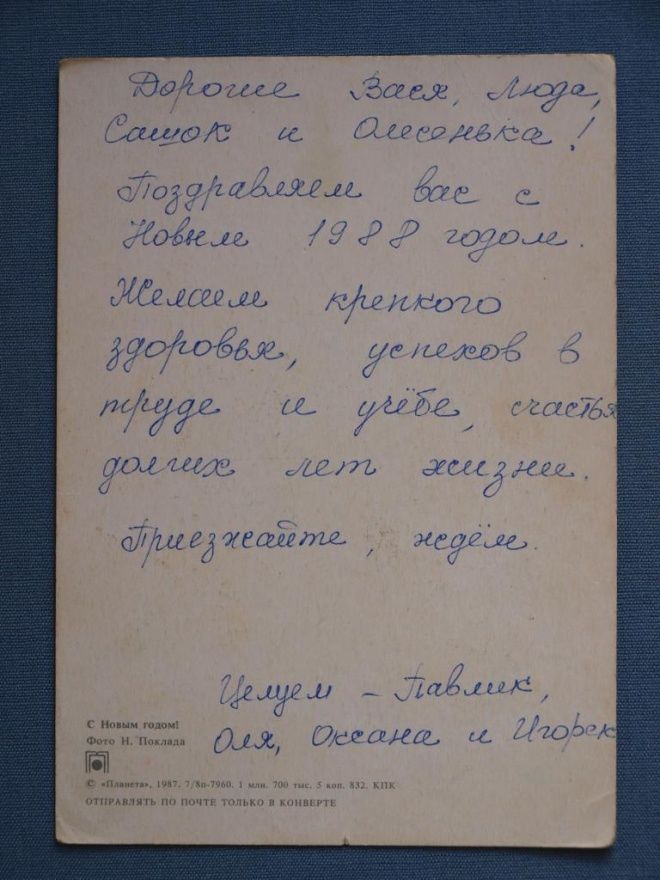 Дорогие Вася, Люда,
Сашок и Олесенька!
Поздравляем вас с
Новым 1988 годом.
Желаем крепкого
здоровья, успехов в
труде и учёбе, счастья
долгих лет жизни.
Приезжайте, ждём.
Целуем – Павлик,
Оля, Оксана и Игорек
С Новым годом!
Фото Н. Поклада
© «Планета», 1987. 7/8п-7960. 1 млн. 700 тыс. 5 коп. 832. КПК
ОТПРАВЛЯТЬ ПО ПОЧТЕ ТОЛЬКО В КОНВЕРТЕ